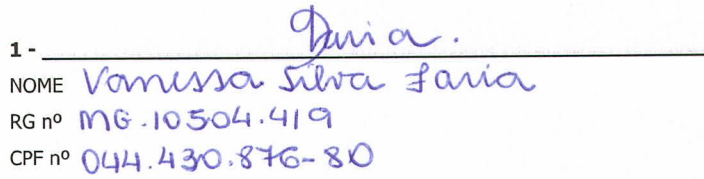 1 - Faria.
NOME Vanessa Silva Faria
RG nº MG.10504.419
CPF nº 044.430.876-80